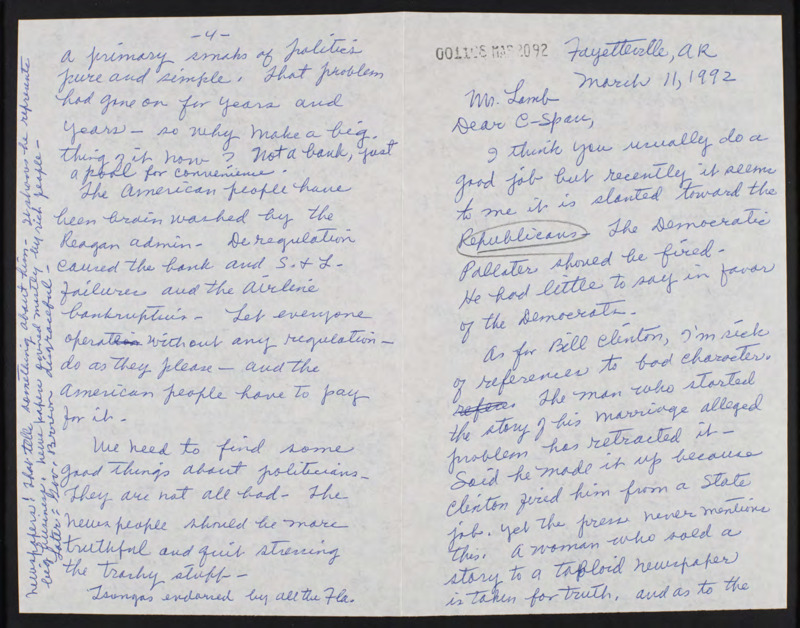 -4-
a primary smaks of politics
pure and simple. That problem
had gone on for years and
years - so why make a big
thing of it now? Not a bank, just
a pool for convenience.
The American people have
been brain washed by the
Reagan admin - Deregulation
caused the bank and S. & L.
failures and the Airline
bankruptcies - Let everyone
operation without any regulation -
do as they please - and the
American people have to pay
for it.
We need to find some
good things about politicians -
They are not all bad - The
news people should be more
truthful and quit stressing
the trashy stuff -
Tsongas endorsed by all the Fla.
newspapers! That tells something about him - It shows he represents
big business, newspapers owned mostly by rich people -
Later - Gov. Brown disgraceful -
001128 MAR 20 92
Fayetteville, AR
March 11, 1992
Mr. Lamb
Dear C-Span,
I think you usually do a
good job but recently it seems
to me it is slanted toward the
Republicans - The Democratic
Pallster should be fired -
He had little to say in favor
of the Democrats.
As for Bill Clinton, I'm sick
of references to bad character.
refere. The man who started
the story of his marriage alleged
problem has retracted it -
Said he made it up because
Clinton fired him from a State
job. Yet the press never mentions
this. A woman who sold a
story to a tabloid newspaper
is taken for truth, and as to the